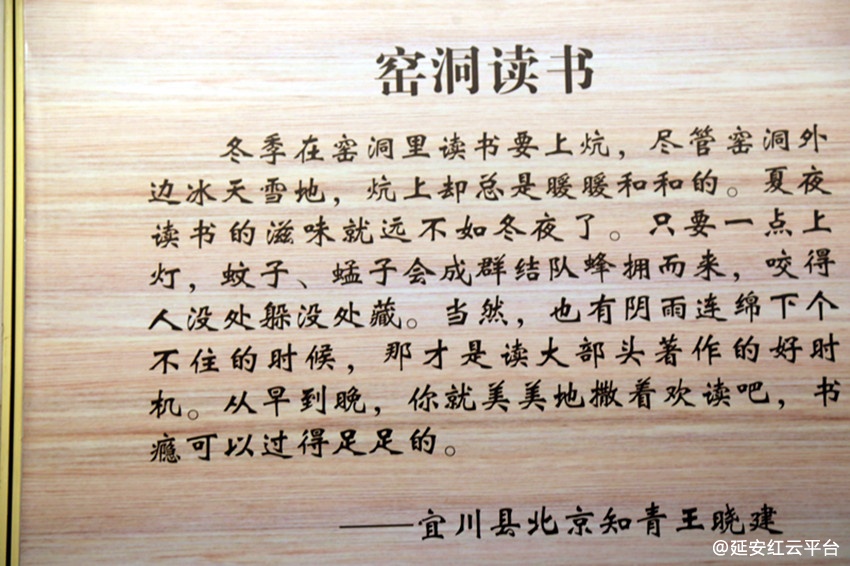 窑洞读书
冬季在窑洞里读书要上炕，尽管窑洞外
边冰天雪地，炕上却总是暖暖和和的。夏夜
读书的滋味就远不如冬夜了。只要一点上
灯，蚊子、蜢子会成群结队蜂拥而来，咬得
人没处躲没处藏。当然，也有阴雨连绵下个
不住的时候，那才是读大部头著作的好时
机。从早到晚，你就美美地撒着欢读吧，书
瘾可以过得足足的。
——宜川县北京知青王晓建
@延安红云平台